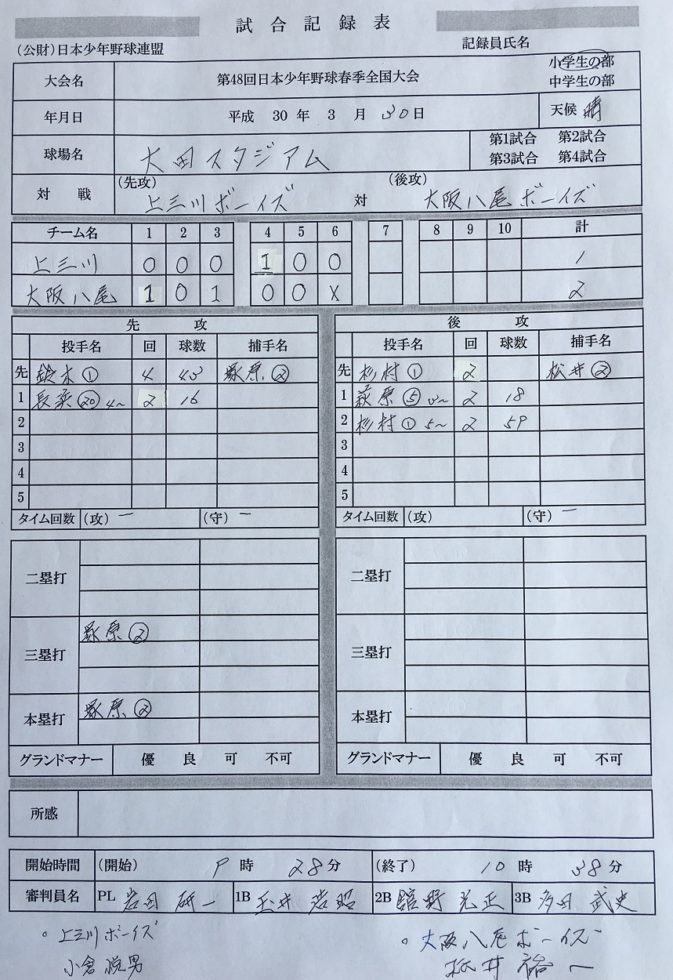 試合記録表
(公財)日本少年野球連盟 記録員氏名
大会名 第48回日本少年野球春季全国大会 小学生の部 中学生の部
年月日 平成 30 年 3 月 30 日 天候 晴
球場名 太田スタジアム 第1試合 第2試合 第3試合 第4試合
対 戦 (先攻) 上三川ボーイズ 対 (後攻) 大阪八尾ボーイズ
チーム名 1 2 3 4 5 6 7 8 9 10 計
上三川 0 0 0 1 0 0 1
大阪八尾 1 0 1 0 0 X 2
先 攻
投手名 回 球数 捕手名
先 鈴木① 4 43 塚原②
1 長桒⑳ 4~ 2 16
2
3
4
5
タイム回数 (攻) 一 (守) 一
後 攻
投手名 回 球数 捕手名
先 杉村① 2 松井②
1 萩原⑤ 3~ 2 18
2 杉村① 5~ 2 59
3
4
5
タイム回数 (攻) (守) 一
二塁打
三塁打 塚原②
本塁打 塚原②
グランドマナー 優 良 可 不可
二塁打
三塁打
本塁打
グランドマナー 優 良 可 不可
所感
開始時間 (開始) 9 時 28 分 (終了) 10 時 38 分
審判員名 PL 岩田 研一 1B 玉井 岩昭 2B 光正 3B 多田 武史
。上三川ボーイズ 。大阪八尾ボーイズ
小倉悦男 松井 裕一